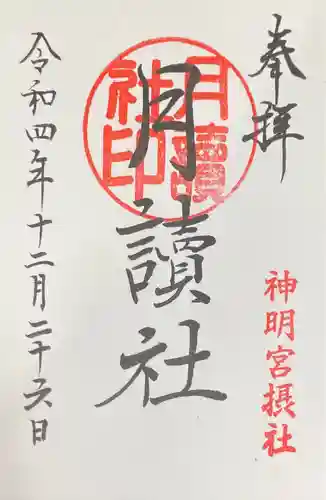 奉拝
神明宮摂社
月讀社
月讀
社印
令和四年十二月二十六日